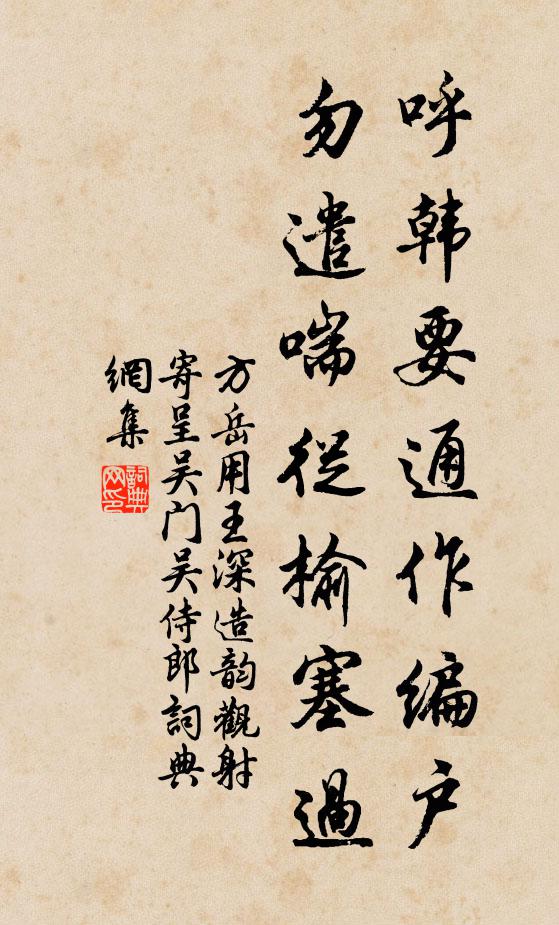 呼韩要通作编户
勿遣喘従榆塞過
方岳用王深造韵觀射
寄呈吴门吴侍郎詞典
網集
詞典
网印